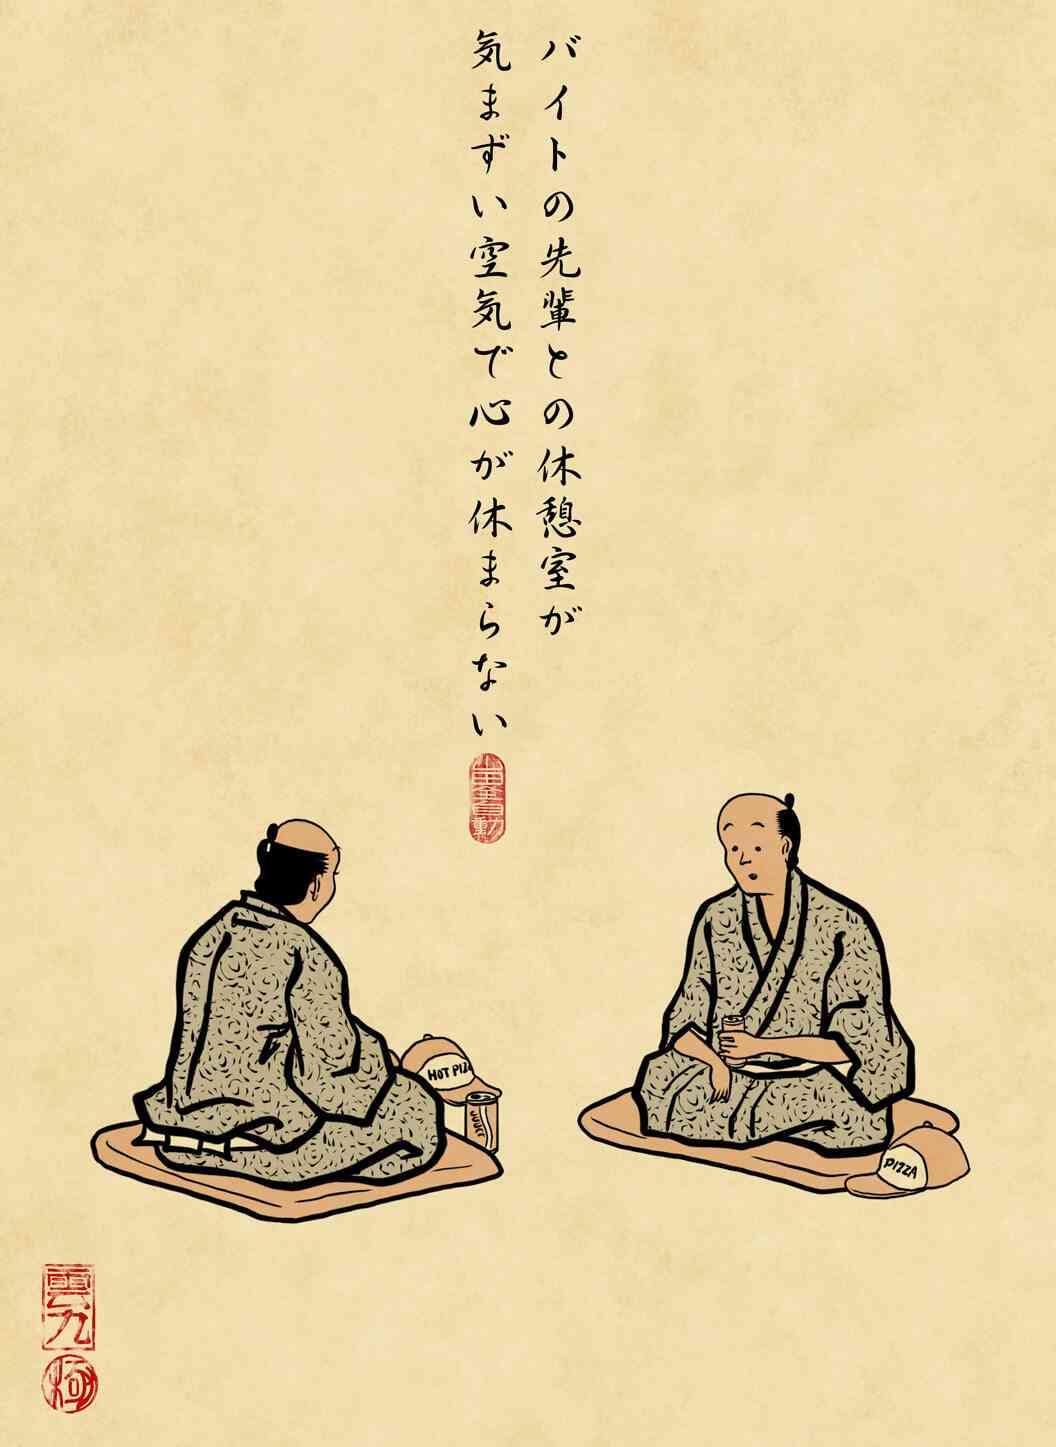 バイトの先輩との休憩室が
気まずい空気で心が休まらない
HOT PIZ
PIZZA